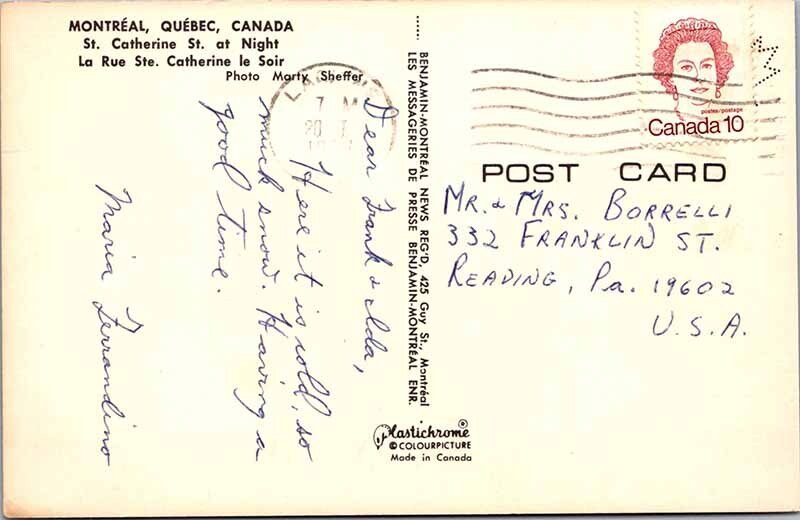 MONTRÉAL, QUÉBEC, CANADA
St. Catherine St. at Night
La Rue Ste. Catherine le Soir
Photo Marty Sheffer
Dear Frank & Ida,
Here it is cold, so
much snow. Having a
good time.
Maria Ferrandino
7 M
20
BENJAMIN-MONTRÉAL NEWS REG'D, 425 Guy St., Montréal
LES MESSAGERIES DE PRESSE BENJAMIN-MONTRÉAL ENR.
Plastichrome ®
© COLOURPICTURE
Made in Canada
postes/postage
Canada 10
POST CARD
MR. & MRS. BORRELLI
332 FRANKLIN ST.
READING, Pa. 19602
U.S.A.